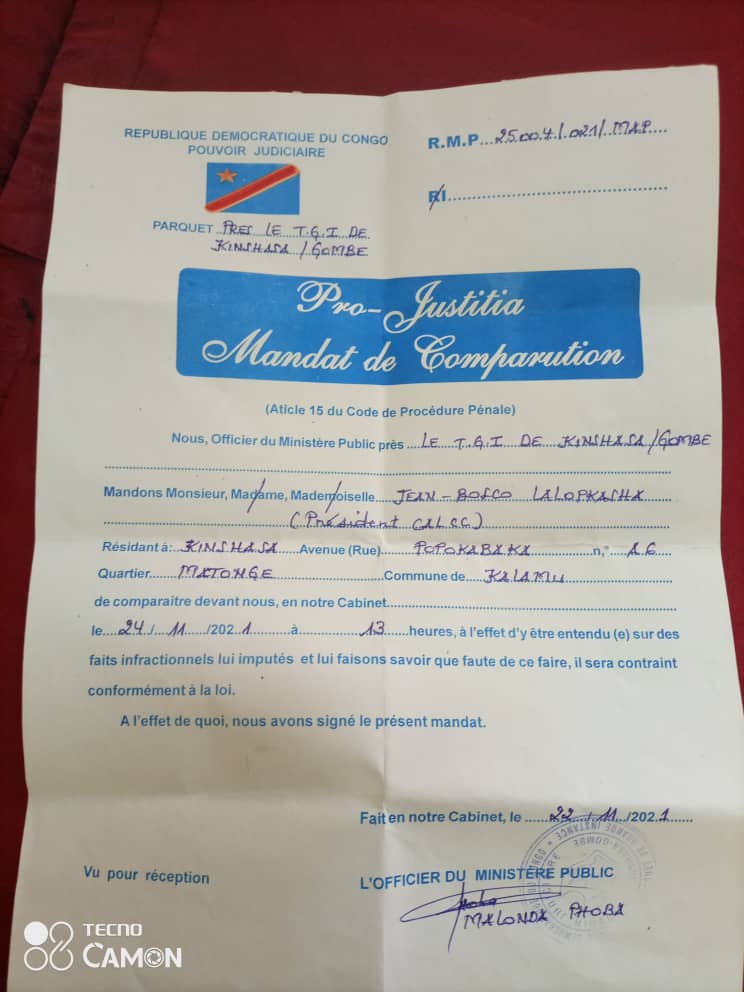 REPUBLIQUE DEMOCRATIQUE DU CONGO
POUVOIR JUDICIAIRE
PARQUET PRES LE T.G.I DE
KINSHASA / GOMBE
R.M.P. 25.007/021/MAP
RI
Pro-Justitia
Mandat de Comparution
(Aticle 15 du Code de Procédure Pénale)
Nous, Officier du Ministère Public près LE T.G.I DE KINSHASA/GOMBE
Mandons Monsieur, Madame, Mademoiselle JEAN-BOSCO LALOPKASHA
(Président CALCC)
Résidant à: KINSHASA Avenue (Rue) POPOKABAKA n,° 16
Quartier MATONGE Commune de KALAMU
de comparaitre devant nous, en notre Cabinet
le 24/11/2021 à 13 heures, à l'effet d'y être entendu (e) sur des
faits infractionnels lui imputés et lui faisons savoir que faute de ce faire, il sera contraint
conformément à la loi.
A l'effet de quoi, nous avons signé le présent mandat.
Fait en notre Cabinet, le 22/11/2021
Vu pour réception
L'OFFICIER DU MINISTÈRE PUBLIC
MALONDA PHOBA
TECNO
CAMON